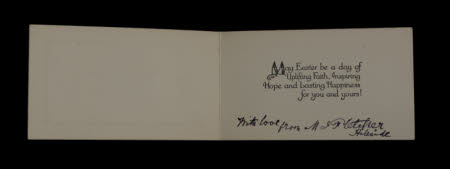 May Easter be a day of
Uplifting Faith, Inspiring
Hope and lasting Happiness
for you and yours!
With love from M